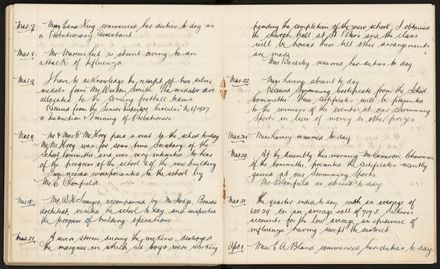 Feb. 9. Miss Lena King commenced her duties to-day as
a Probationary Assistant
Mar. 5. Mr is absent owing to an
attack of influenza
I have to acknowledge the receipt of two silver
medals from Mr Smith. The medals are
allocated to the football teams
Received from the Senior Inspector
re Instruction & Training of Probationers
Mar. 9. Mr & Mrs McIvoy paid a visit to the school to-day
Mr McIvoy was for some time Secretary of the
School Committee, and was very interested to hear
of the progress of the school & the new building
to the school by
Mr C.
Mar. 15. accompanied by Mr Board's
Architect, visited the school to-day and inspected
the progress of building operations.
Mar. 21. A severe storm during the weekend destroyed
the marquee in which six boys were working
pending the completion of the new school, I obtained
the church hall at St Peters and the class
will be housed there till other arrangements
are made.
Miss Beasley resumed her duties to-day
Mar. 22. Miss Harvey absent to-day
Received Swimming Certificates from the School
Committee. These certificates will be presented
to the winners of the events at our Swimming
Sports in lieu of money or other prizes
Mar. 24. Miss Harvey resumed to-day
Mar. 29. At the Assembly this morning Mr Cameron Chairman
of the Committee, presented the certificates recently
gained at our Swimming Sports
Mr is absent to-day
Mar. 31. The quarter ends to-day with an average of
on an average roll of Sickness
accounts for the low average, an epidemic of
influenza having swept the district.
Apl. 1. Miss E. A. Bland commenced her duties to-day